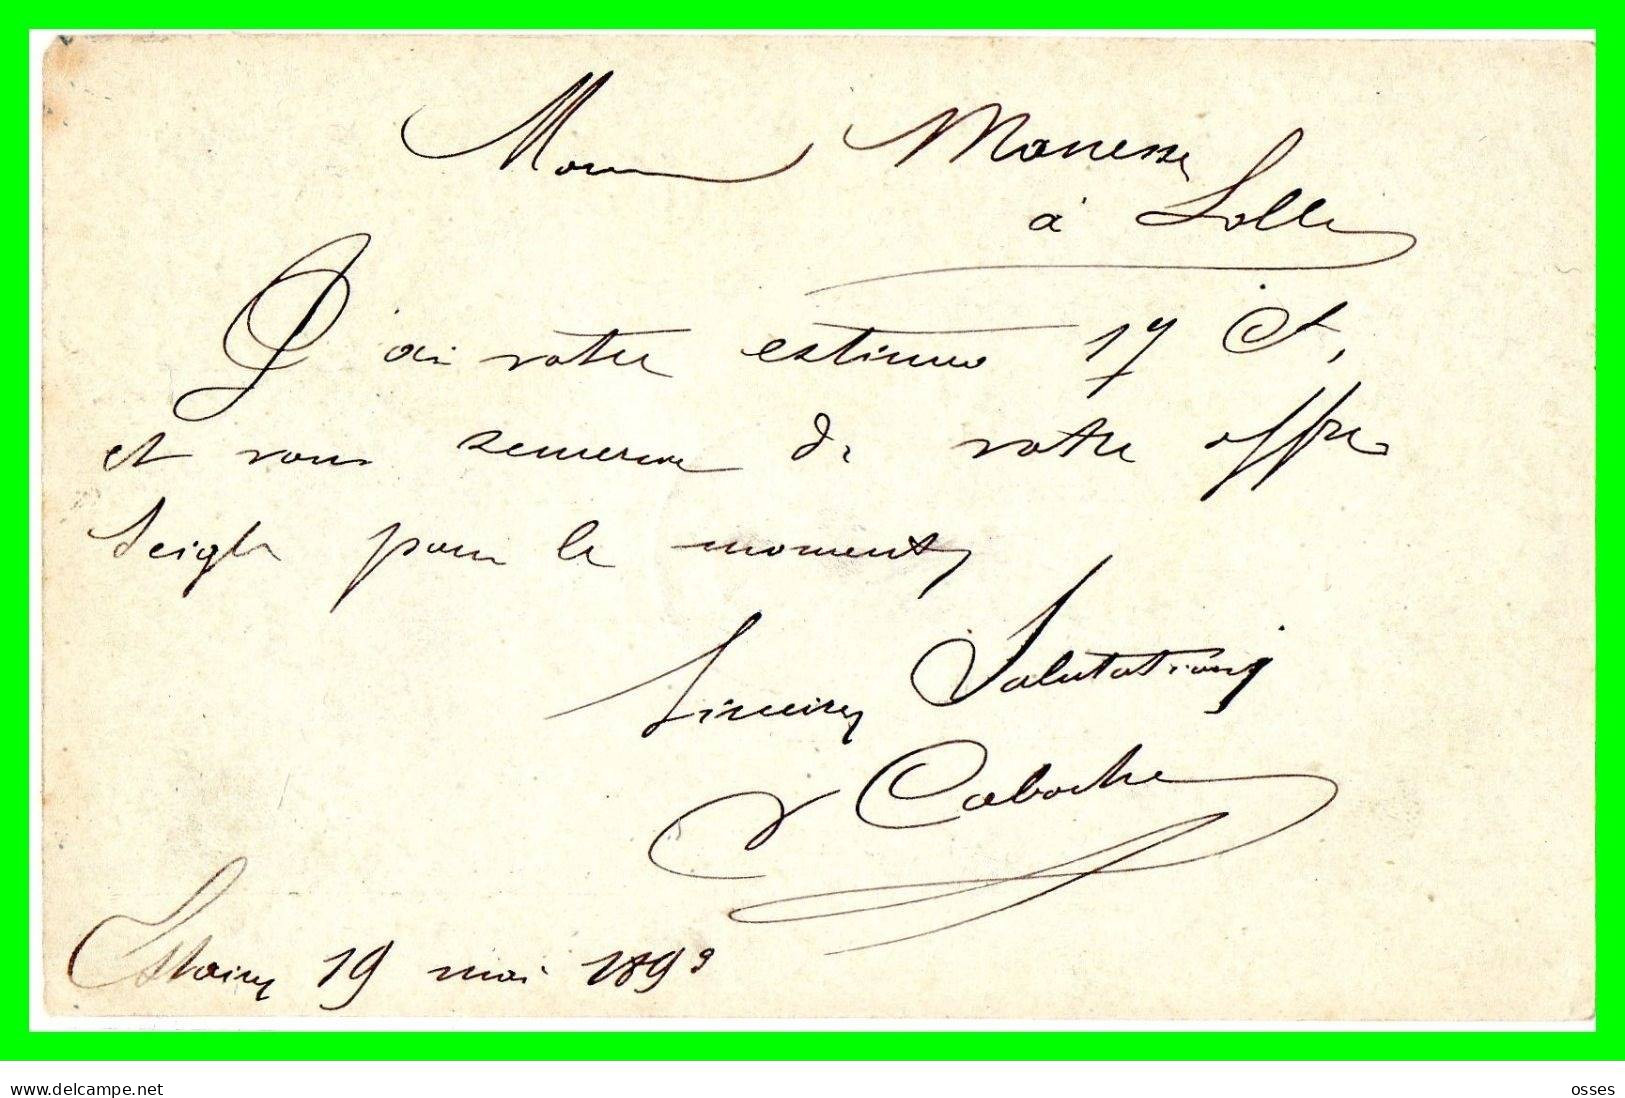 Monsieur Manesse
à Lille
J'ai votre estimée 17 Ct,
et vous remercie de votre offre
Seigle pour le moment,
Sincères Salutations
Caboche
Estaires 19 mai 1893
www.delcampe.net
osses